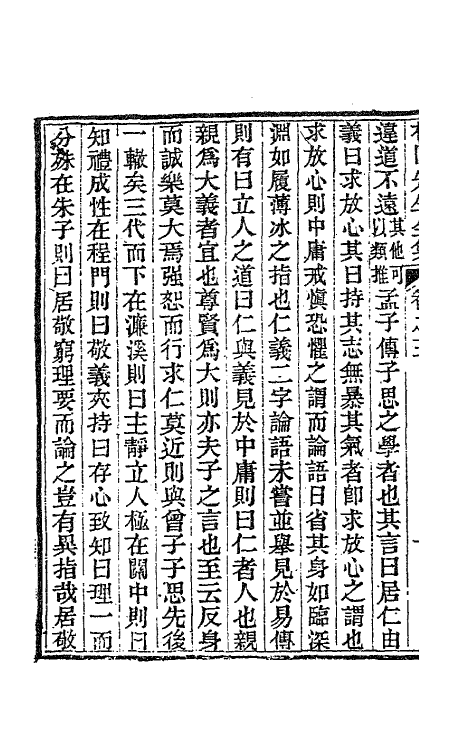 違道不遠其他可以類推孟子傳子思之學者也其言曰居仁由
義曰求放心其曰持其志無暴其氣者卽求放心之謂也
求放心則中庸戒愼恐懼之謂而論語日省其身如臨深
淵如履薄冰之指也仁義二字論語未嘗並舉見於易傳
則有曰立人之道曰仁與義見於中庸則曰仁者人也親
親爲大義者宜也尊賢爲大則亦夫子之言也至云反身
而誠樂莫大焉强恕而行求仁莫近則與曾子子思先後
一轍矣三代而下在濂溪則曰主靜立人極在關中則曰
知禮成性在程門則曰敬義夾持曰存心致知曰理一而
分殊在朱子則曰居敬窮理要而論之豈有異指哉居敬